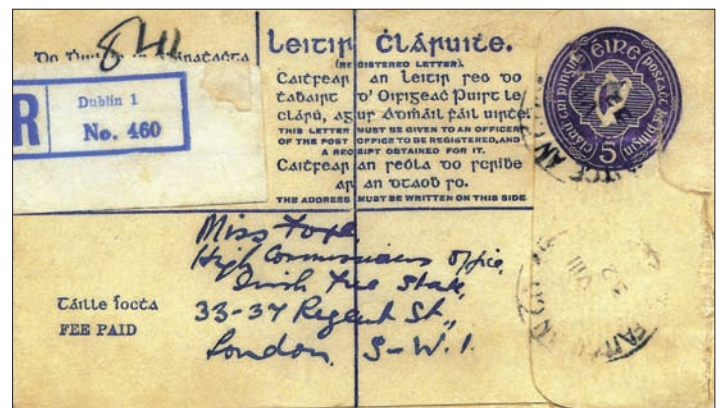 841
Dublin 1
R No. 460
Leitir Ċláruiṫe.
(REGISTERED LETTER).
Caiṫfear an leitir seo do
ṫaḃairt d' Oifigeaċ Puirt le
clárú, agus Admáil fáil uirṫe.
THIS LETTER MUST BE GIVEN TO AN OFFICER
OF THE POST OFFICE TO BE REGISTERED, AND
A RECEIPT OBTAINED FOR IT.
Caiṫfear an seola do scríbe
ar an dtaoḃ so.
THE ADDRESS MUST BE WRITTEN ON THIS SIDE
éire
postáċt
5
Miss
High Commissioners Office,
Irish Free State,
33-37 Regent St.,
London, S-W.1.
Táille íocṫa
FEE PAID